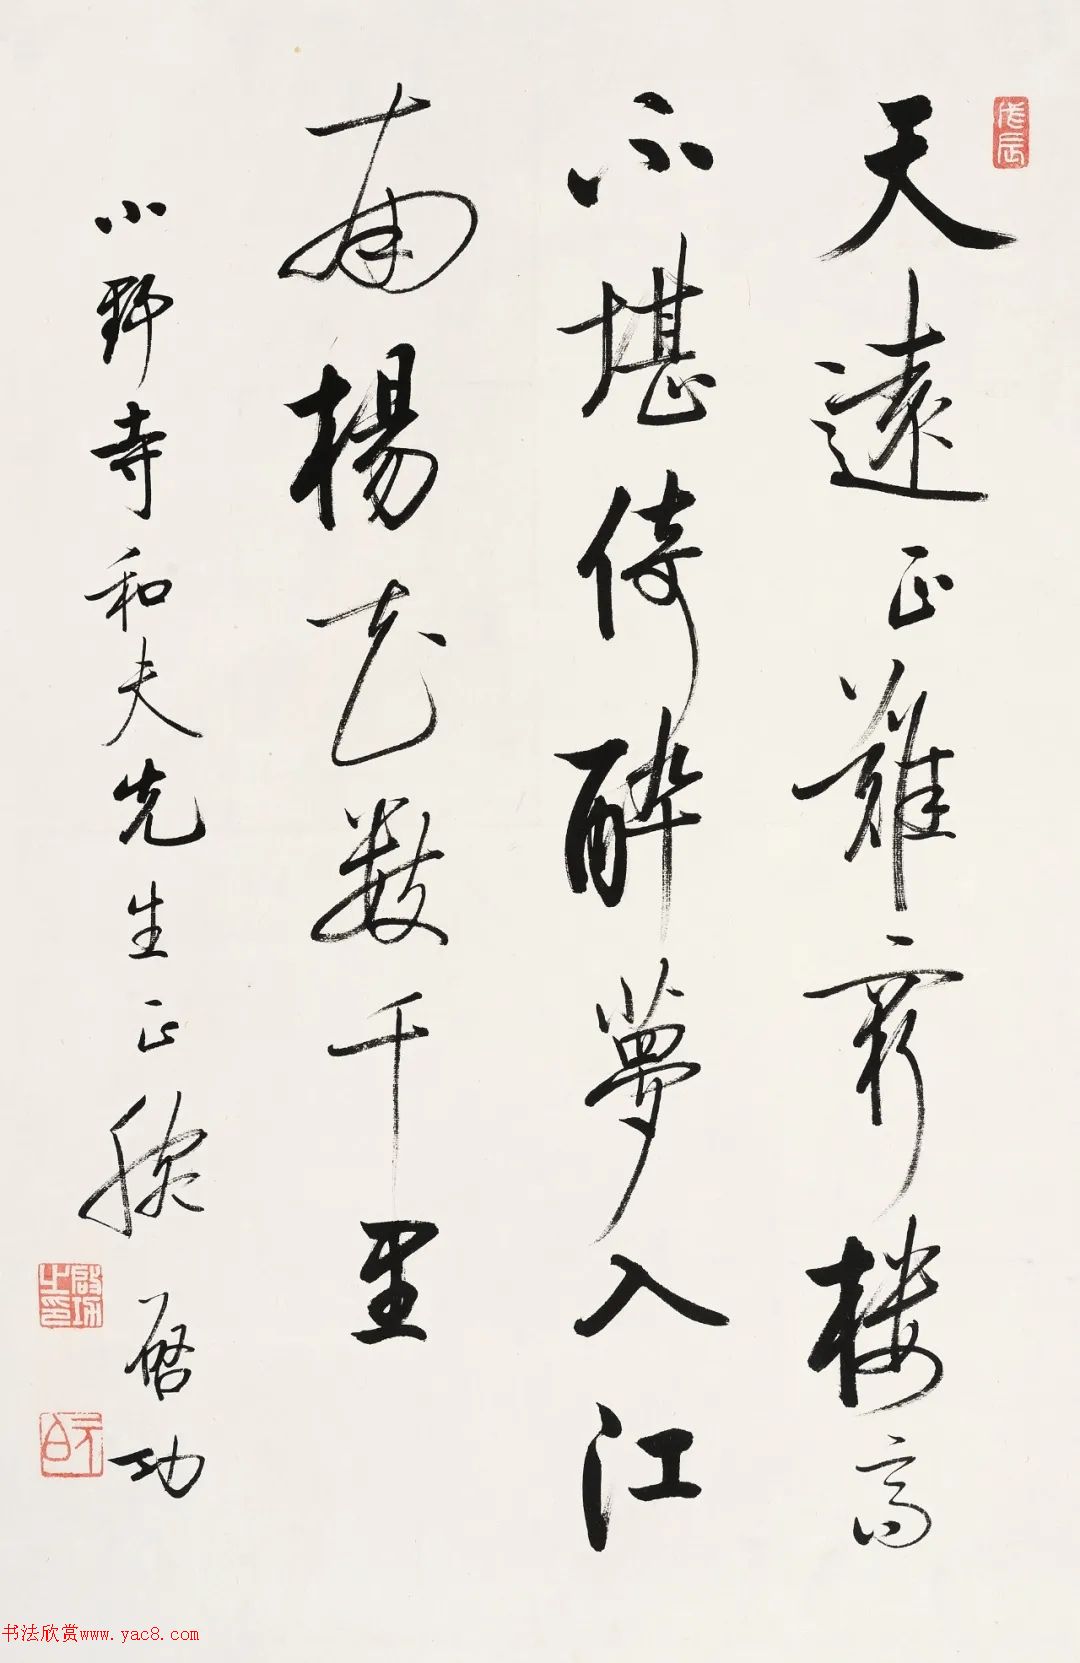 天遠正難窮楼高
不堪倚醉夢入江
南楊花数千里
小野寺和夫先生正腕
启功
戊辰
啟功之印
书法欣赏www.yac8.com